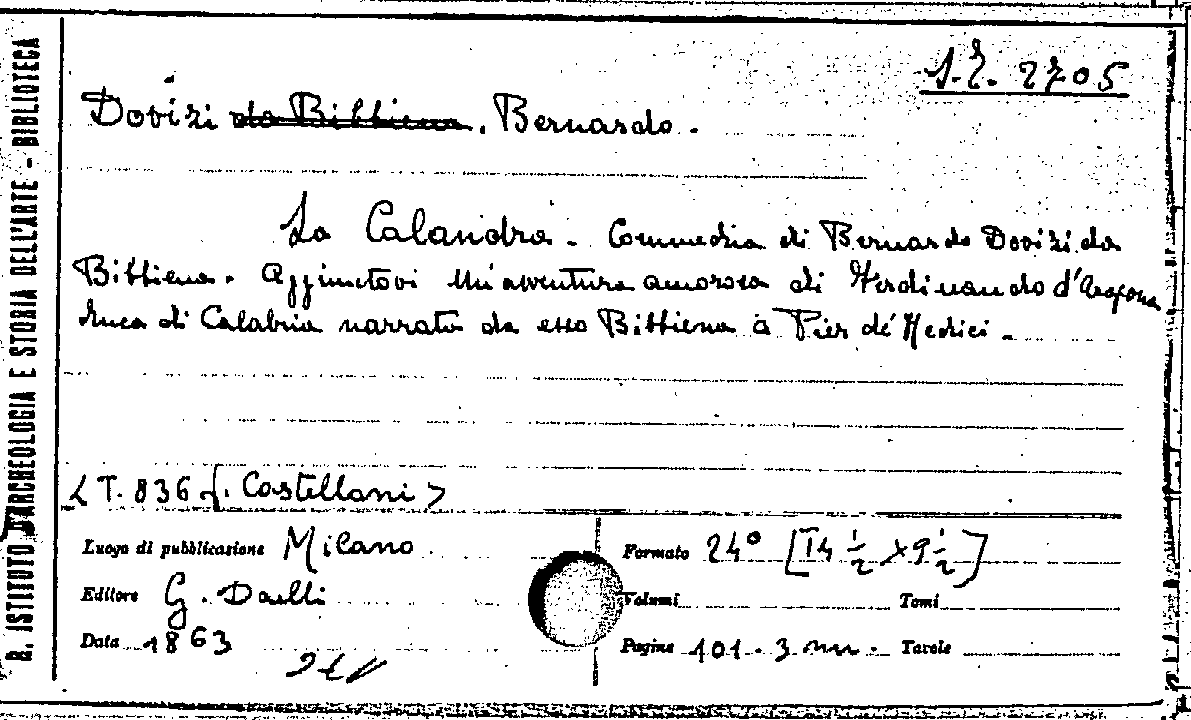 R. ISTITUTO D'ARCHEOLOGIA E STORIA DELL'ARTE - BIBLIOTECA
2705
Dovizi da Bibbiena, Bernardo.
La Calandra. Commedia di Bernardo Dovizi da
Bibbiena. Aggiuntovi un'avventura amorosa di Ferdinando d'Aragona
duca di Calabria narrata da esso Bibbiena a Pier de' Medici.
< T. 836 f. Castellani >
Luogo di pubblicazione Milano
Formato 24° [14 1/2 x 9 1/2]
Editore G. Daelli
Volumi
Tomi
Data 1863
Pagine 101. 3 nn.
Tavole